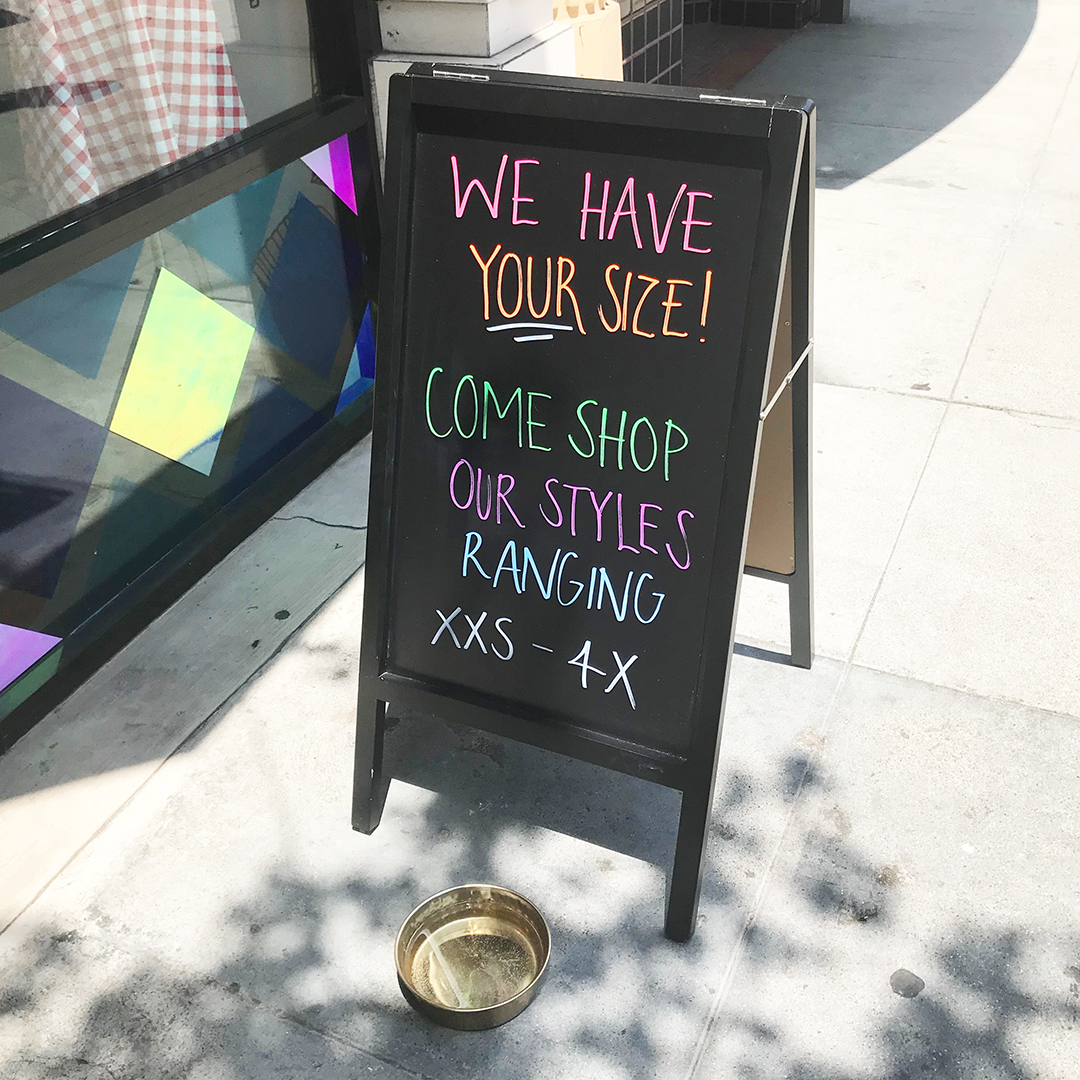 WE HAVE
YOUR SIZE!
COME SHOP
OUR STYLES
RANGING
XXS - 4X